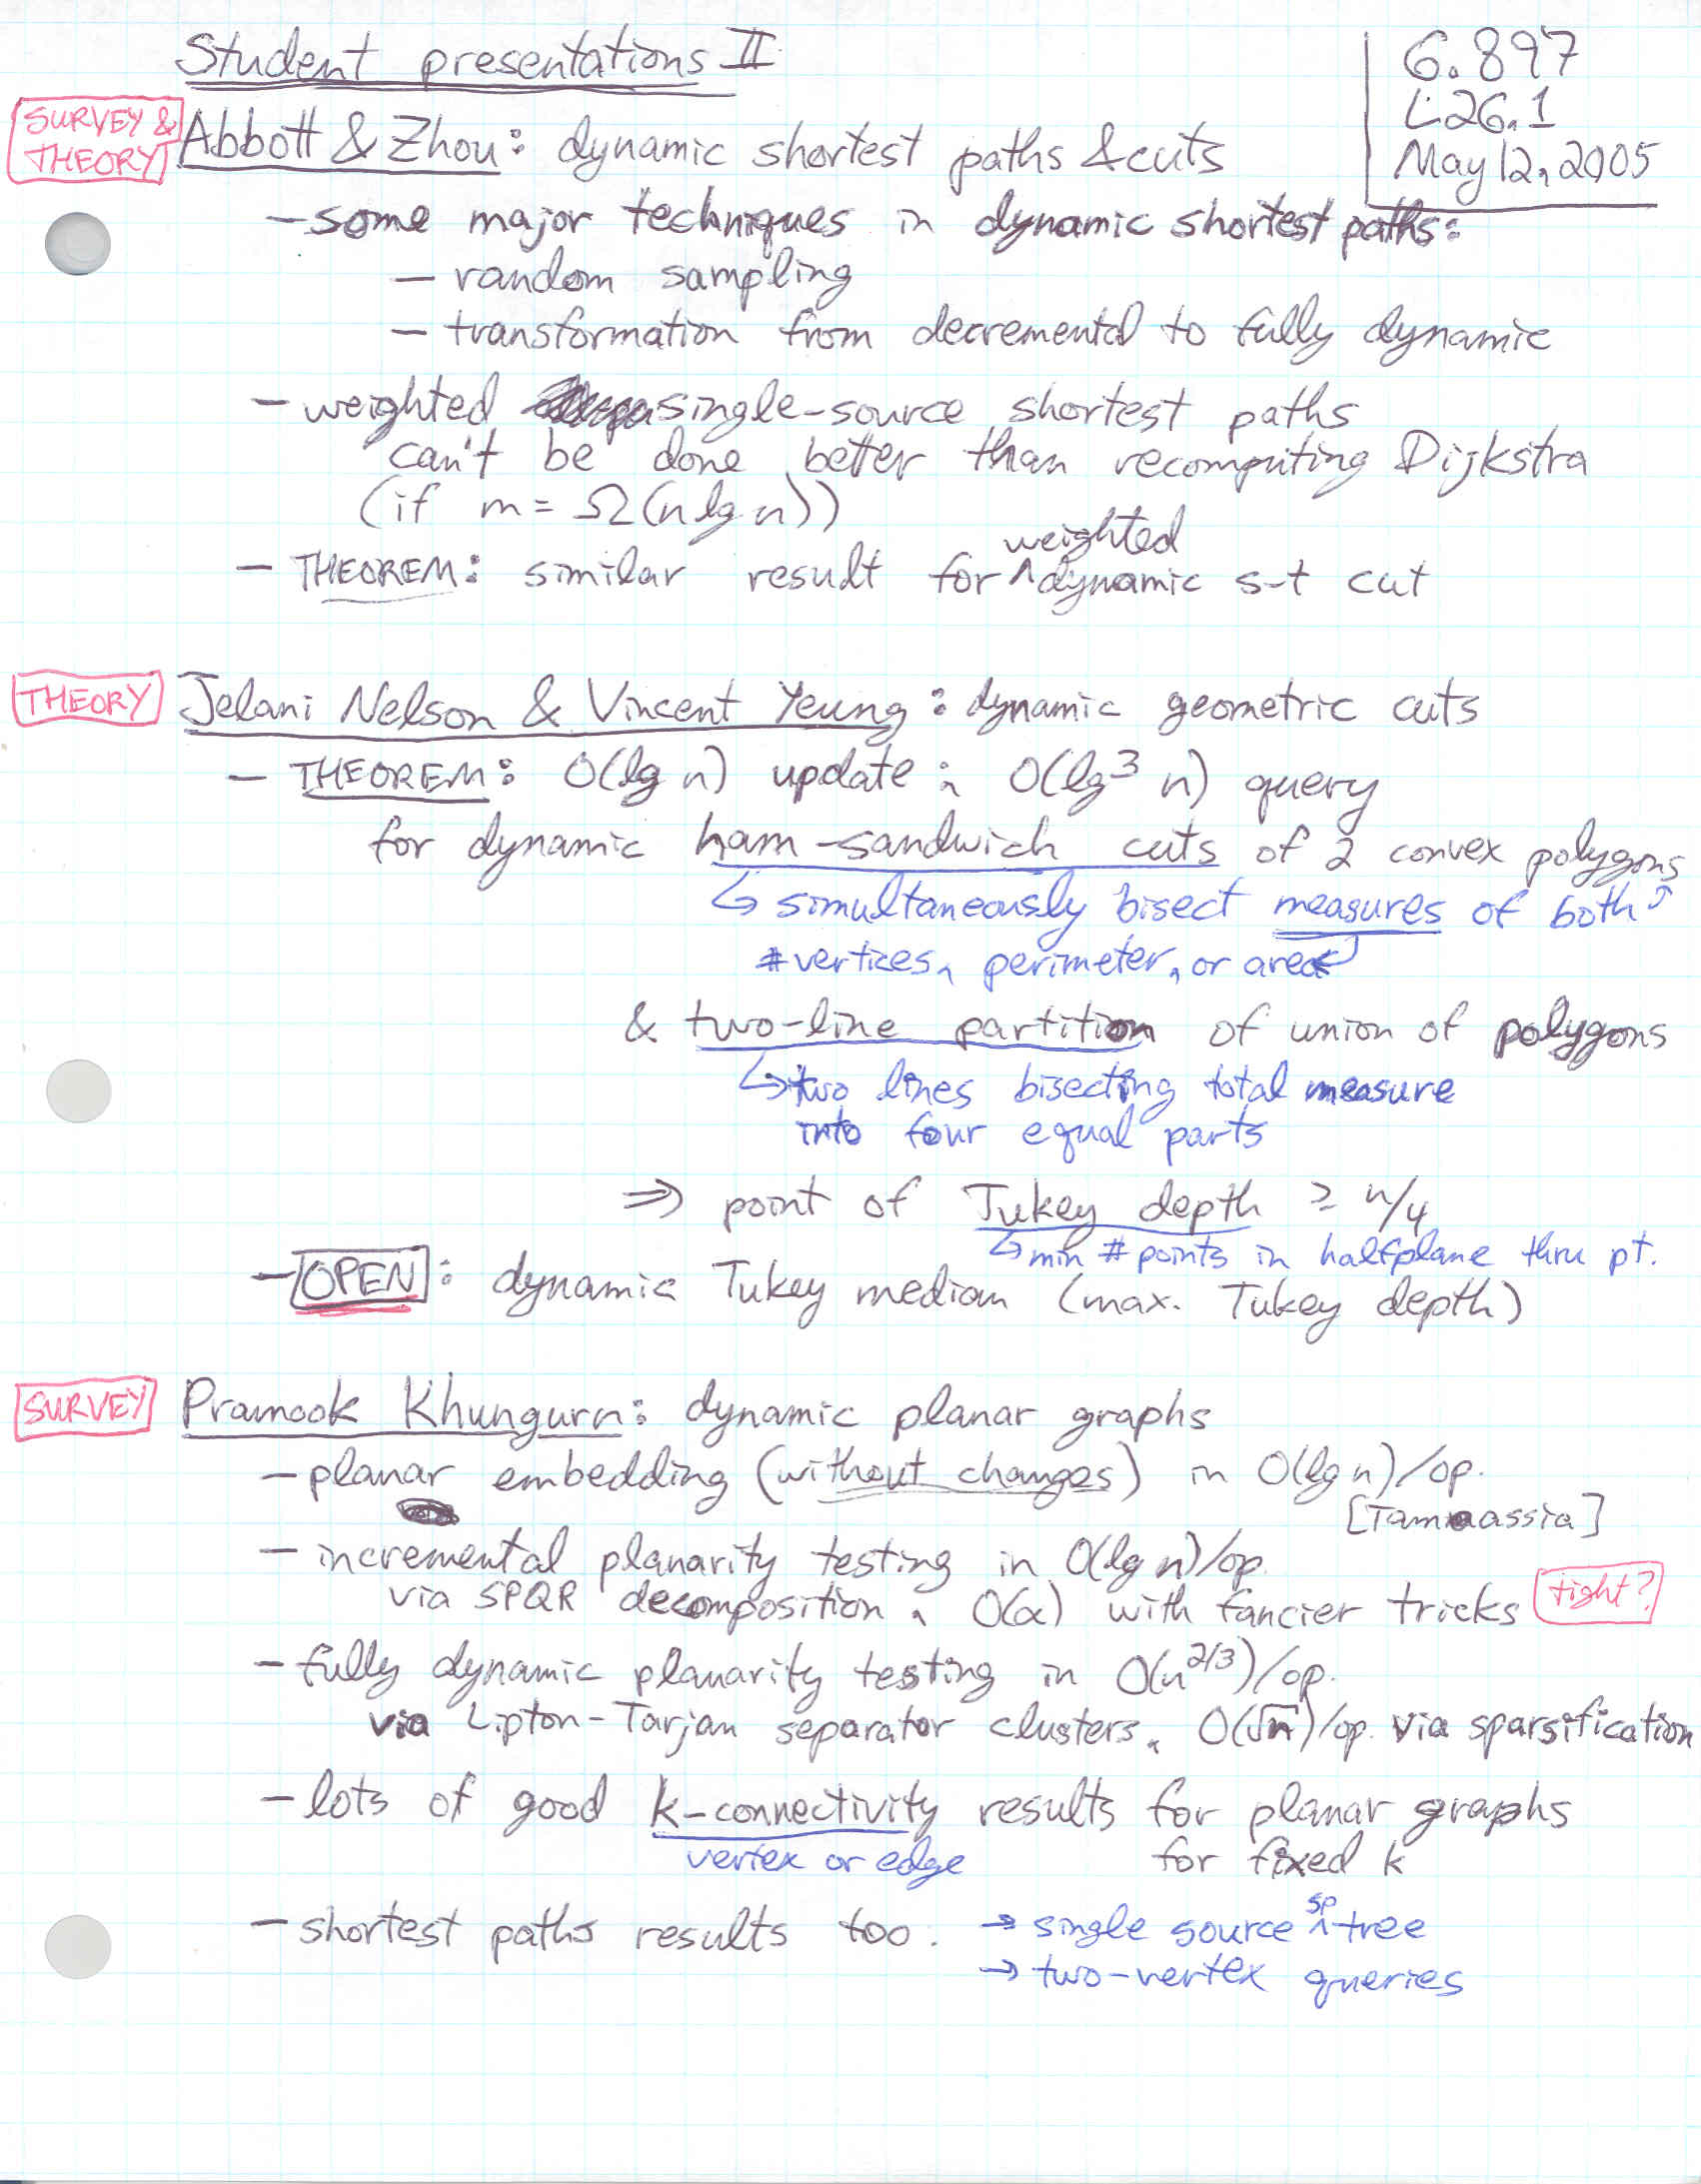 Student presentations II
6.897
L26.1
May 12, 2005
SURVEY &
THEORY
Abbott & Zhou: dynamic shortest paths & cuts
- some major techniques in dynamic shortest paths:
- random sampling
- transformation from decremental to fully dynamic
- weighted single-source shortest paths
can't be done better than recomputing Dijkstra
(if m = Ω(n lg n))
- THEOREM: similar result for ^weighted dynamic s-t cut
THEORY
Jelani Nelson & Vincent Yeung: dynamic geometric cuts
- THEOREM: O(lg n) update, O(lg³ n) query
for dynamic ham-sandwich cuts of 2 convex polygons
↳ simultaneously bisect measures of both ↑
# vertices, perimeter, or area ↵
& two-line partition of union of polygons
↳ two lines bisecting total measure
into four equal parts
⇒ point of Tukey depth ≥ n/4
↳ min # points in halfplane thru pt.
- OPEN: dynamic Tukey median (max. Tukey depth)
SURVEY
Pramook Khungurn: dynamic planar graphs
- planar embedding (without changes) in O(lg n)/op.
[Tamassia]
- incremental planarity testing in O(lg n)/op.
via SPQR decomposition, O(α) with fancier tricks
tight?
- fully dynamic planarity testing in O(n^2/3)/op.
via Lipton-Tarjan separator clusters, O(√n)/op. via sparsification
- lots of good k-connectivity results for planar graphs
vertex or edge
for fixed k
- shortest paths results too: → single source ^sp tree
→ two-vertex queries